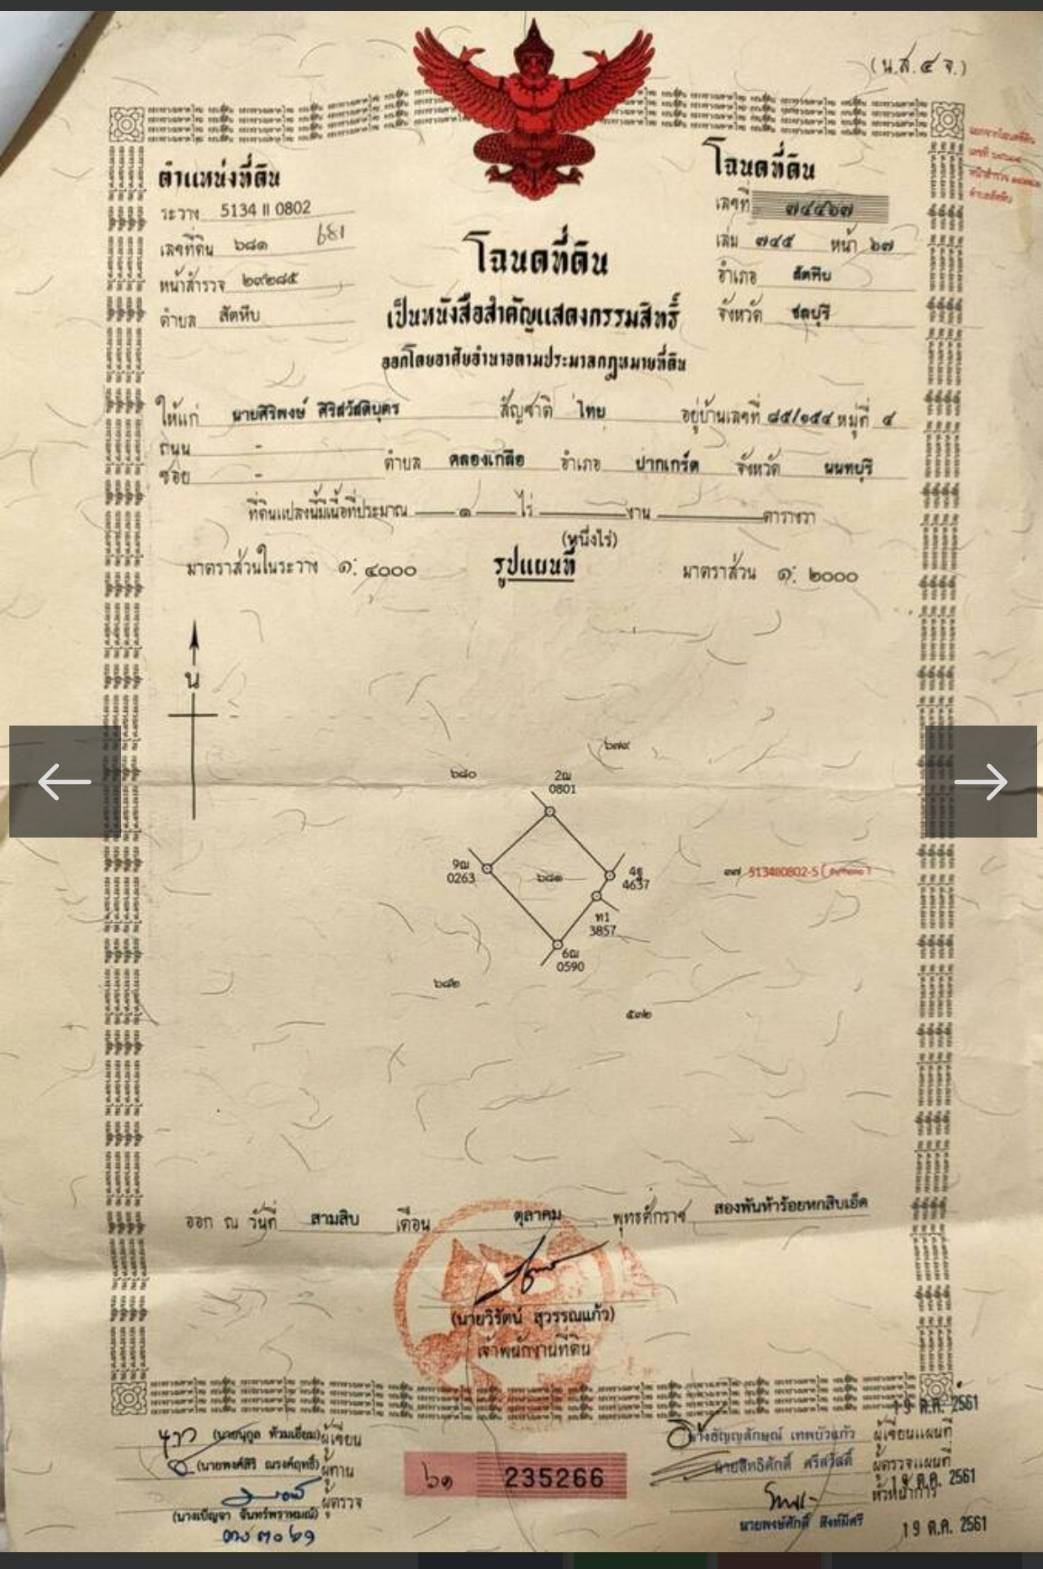 (น.ส.๔ จ.)
ตำแหน่งที่ดิน
ระวาง 5134 II 0802
เลขที่ดิน ๖๘๑ 681
หน้าสำรวจ ๒๙๒๘๕
ตำบล สัตหีบ
โฉนดที่ดิน
เลขที่
เล่ม ๗๔๕ หน้า ๖๗
อำเภอ สัตหีบ
จังหวัด ชลบุรี
โฉนดที่ดิน
เป็นหนังสือสำคัญแสดงกรรมสิทธิ์
ออกโดยอาศัยอำนาจตามประมวลกฎหมายที่ดิน
ให้แก่ นายศิริพงษ์ ศิริสวัสดิบุตร สัญชาติ ไทย อยู่บ้านเลขที่ ๘๕/๑๕๔ หมู่ที่ ๔
ถนน -
ซอย - ตำบล คลองเกลือ อำเภอ ปากเกร็ด จังหวัด นนทบุรี
ที่ดินแปลงนี้มีเนื้อที่ประมาณ ๑ ไร่ งาน ตารางวา
(หนึ่งไร่)
มาตราส่วนในระวาง ๑: ๔๐๐๐ รูปแผนที่ มาตราส่วน ๑: ๒๐๐๐
น
๖๗๙
๖๘๐
2ฌ
0801
9ฌ
0263
๖๘๑
4ฐ
4637
๓๗ 5134II0802-5
ท1
3857
6ฌ
0590
๖๘๒
๕๗๒
ออก ณ วันที่ สามสิบ เดือน ตุลาคม พุทธศักราช สองพันห้าร้อยหกสิบเอ็ด
(นายวิรัตน์ สุวรรณแก้ว)
เจ้าพนักงานที่ดิน
19 ต.ค. 2561
(นายนุกูล ท้วมเอี่ยม) ผู้เขียน
(นายพงศ์สิริ ณรงค์ฤทธิ์) ผู้ทาน
ผู้ตรวจ
(นางเบ็ญจา จันทร์พราหมณ์)
๖๑ 235266
นางธัญญลักษณ์ เทพบัวแก้ว ผู้เขียนแผนที่
นายสิทธิศักดิ์ ศรีสวัสดิ์ ผู้ตรวจแผนที่
19 ต.ค. 2561
หัวหน้าการ
นายพงษ์ศักดิ์ สิงห์มีศรี 19 ต.ค. 2561